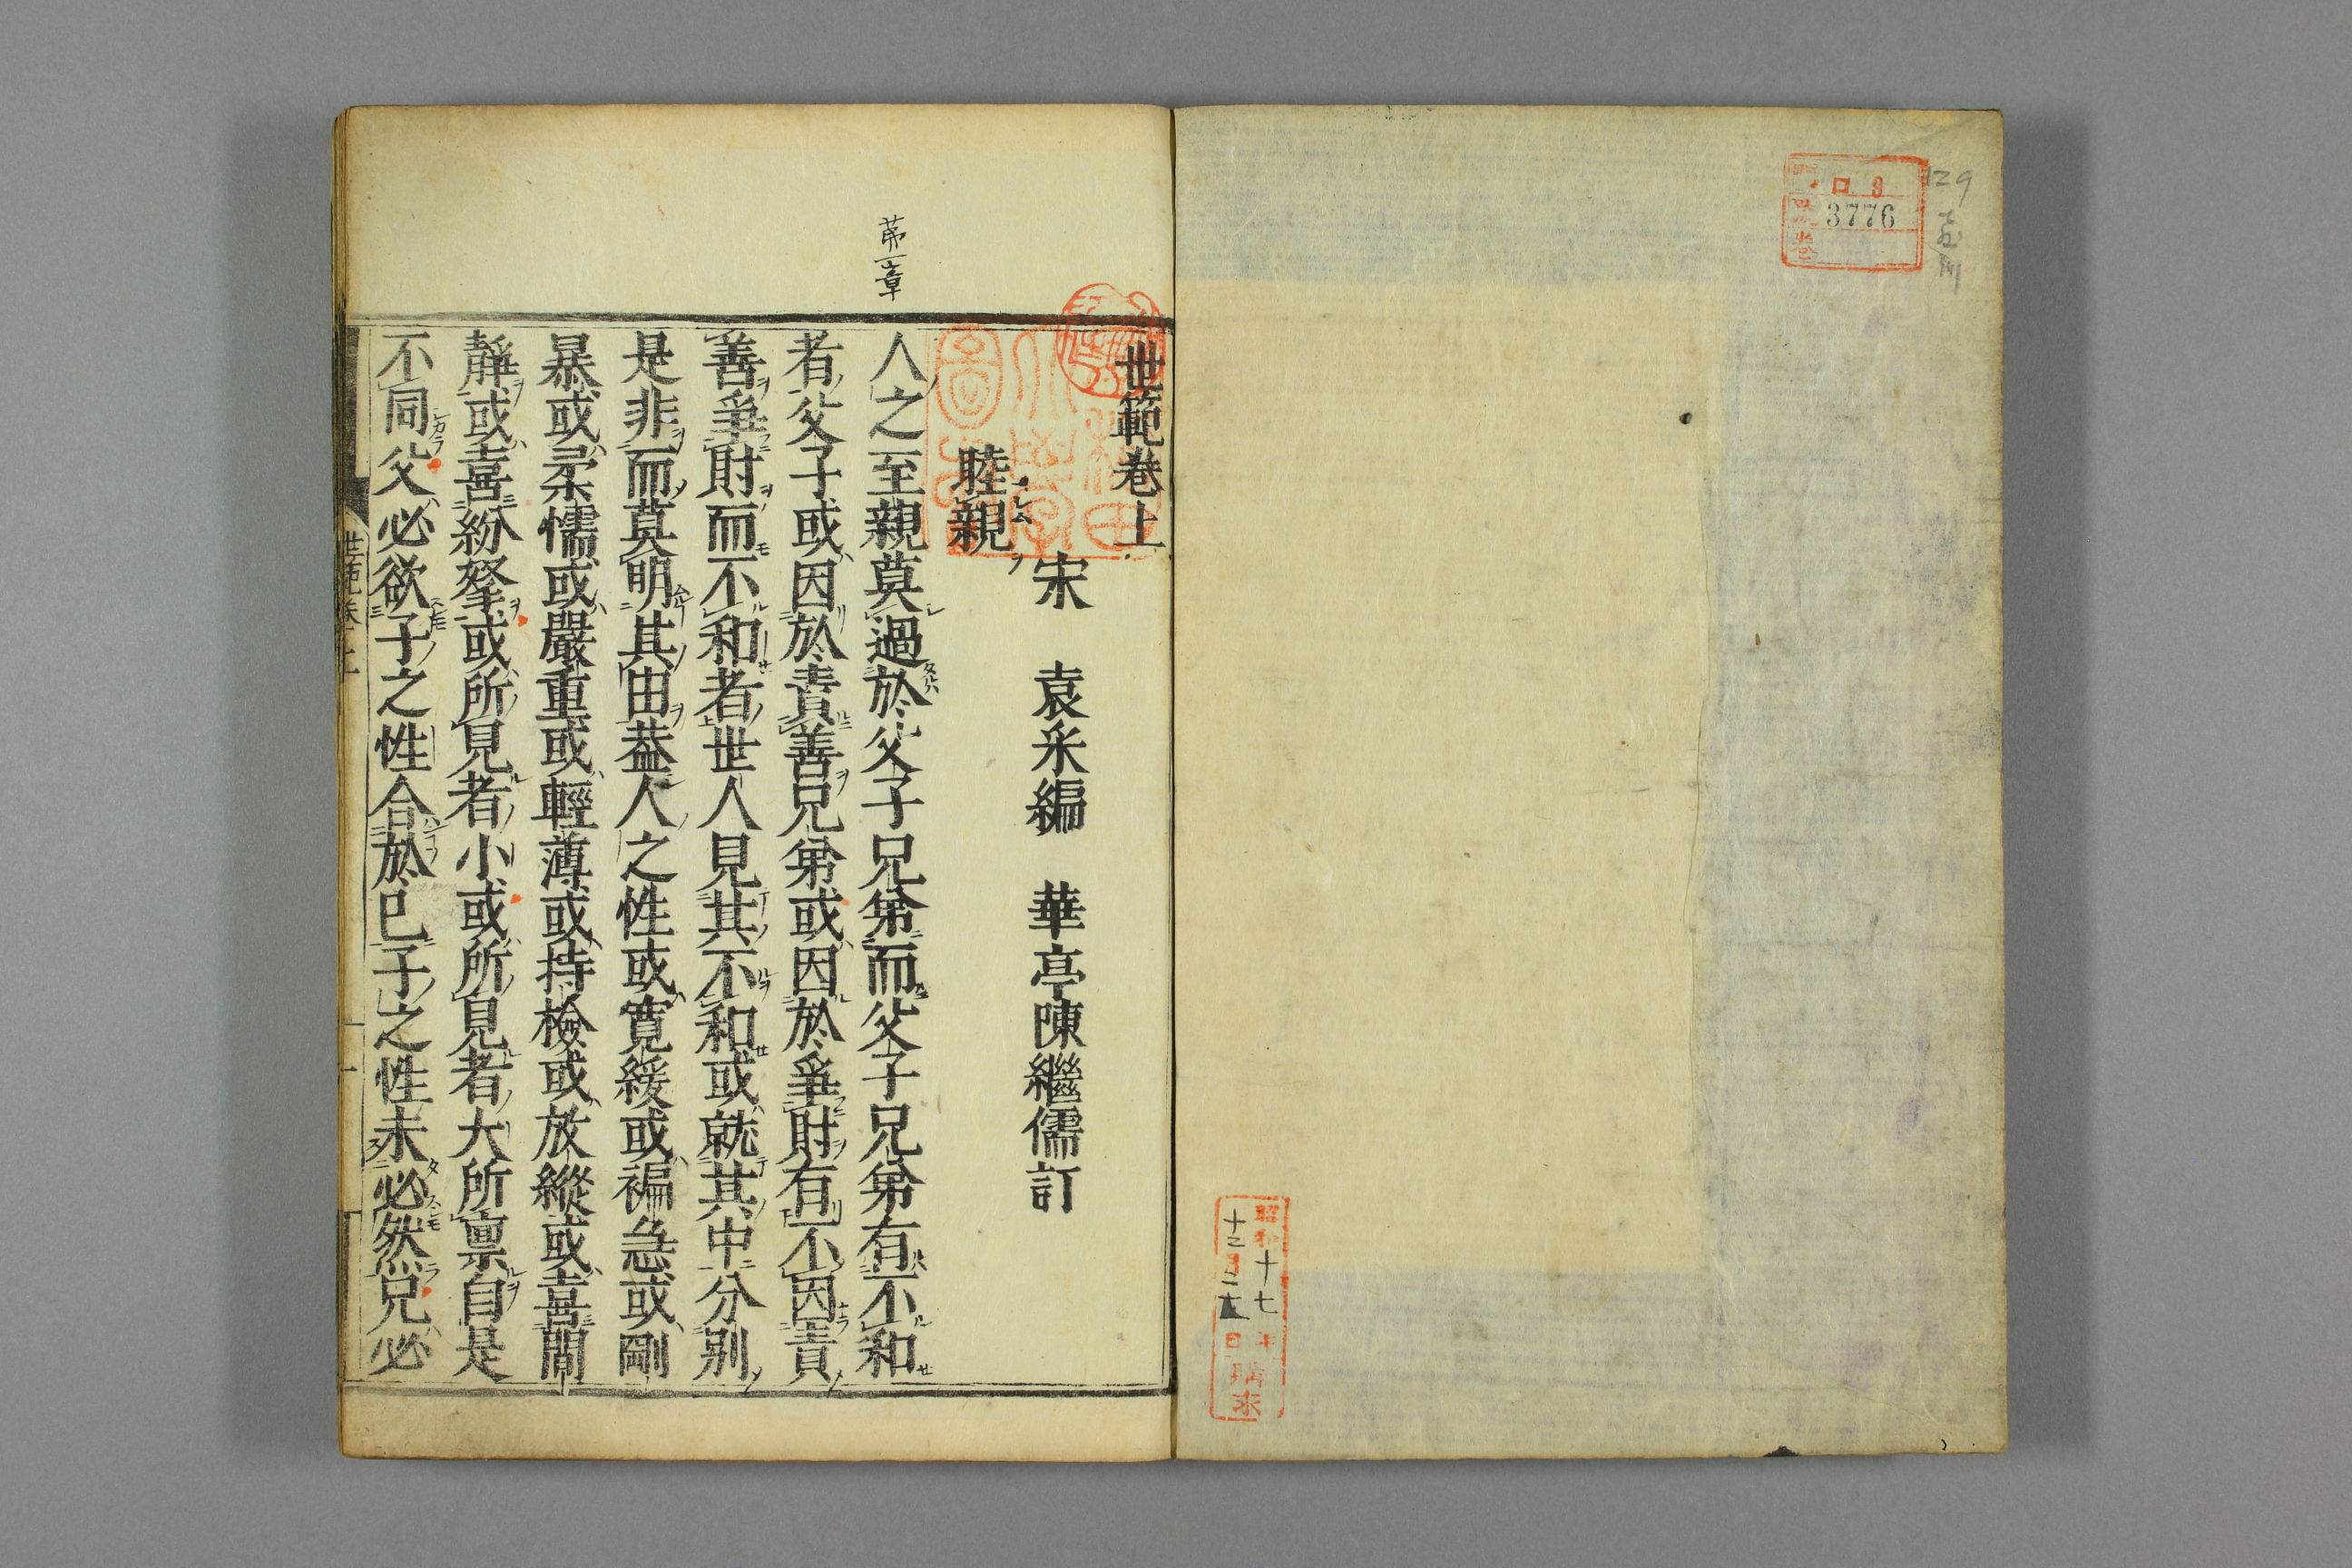 129
ロ9
3776
昭和十七年
購求
世範卷上
宋 袁采編 華亭陳繼儒訂
睦親
第一章
人之至親莫過於父子兄弟而父子兄弟有不和
者父子或因於責善兄弟或因於爭財有不因責
善爭財而不和者世人見其不和或就其中分別
是非而莫明其由葢人之性或寬緩或褊急或剛
暴或柔懦或嚴重或輕薄或持檢或放縱或喜閒
靜或喜紛拏或所見者小或所見者大所禀自是
不同父必欲子之性合於己子之性未必然兄必
世範卷上